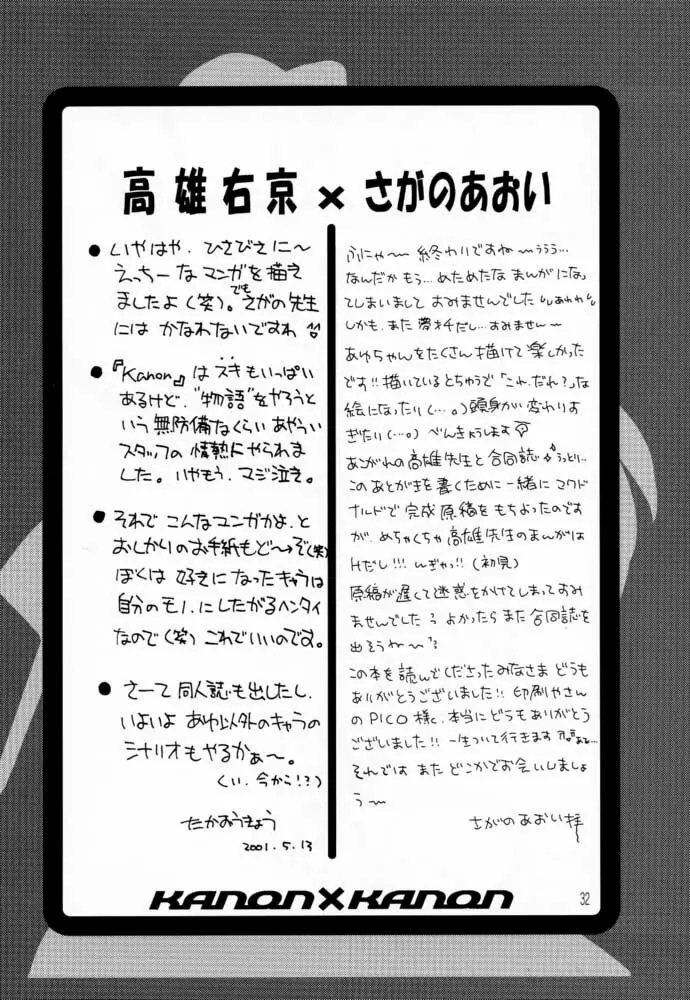 高雄右京×さがのあおい
● いやはや、ひさびさに〜
えっちーなマンガを描え
ましたよ(笑)。でもさがの先生
には かなわないですわ
● 『Kanon』は スキもいっぱい
あるけど、"物語"をやろうと
いう 無防備なくらい あやうい
スタッフの 情熱にやられま
した。いやもう、マジ泣き。
● それで こんなマンガかよ、と
おしかりのお手紙もど〜ぞ(笑)
ぼくは 好きになったキャラは
自分のモノにしたがるヘンタイ
なので(笑) これでいいのです。
● さーて 同人誌も出したし、
いよいよ あゆ以外のキャラの
シナリオもやるかぁ〜。
(い、今から!?)
たかおうきょう
2001.5.13
ふにゃ〜 終わりですね〜ううう…
なんだか もう…めためたな まんがになっ
てしまいまして すみませんでした"あわわ"
しかも、また 夢オチだし…すみません〜
あゆちゃんをたくさん描けて楽しかった
です!! 描いているとちゅうで「これ、だれ?」な
絵になったり(…。)頭身が変わりす
ぎたり(…。) べんきょうします
あこがれの高雄先生と合同誌 うっとり…
このあとがきを書くために一緒にマクド
ナルドで 完成原稿を もちよったのです
が、めちゃくちゃ高雄先生のまんがは
Hだし!!! んぎゃっ!!(初見)
原稿が遅くて迷惑をかけてしまってすみ
ませんでした よかったら また 合同誌を
出そうね〜
この本を読んでくださったみなさま どうも
ありがとうございました!! 印刷やさん
の PICO様、本当にどうもありがとう
ございました!! 一生ついて行きます
それでは また どこかでお会いしましょ
う〜
さがのあおい拝
KANON×KANON
32